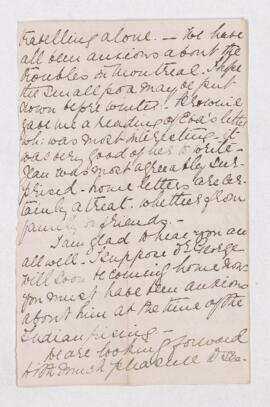 travelling alone. — We have
all been anxious about the
troubles in Montreal. I hope
the small pox may be put
down before winter. Brownie
gave me a reading of Eva's letter
wh. was most interesting - it
was very good of her to write -
was most agreeably sur-
prised - home letters are cer-
tainly a treat - whether from
family or friends. -
I am glad to hear you are
all well. I suppose Dr George
will soon be coming home now
you must have been anxious
about him at the time of the
Indian rising -
We are looking forward
with much pleasure to